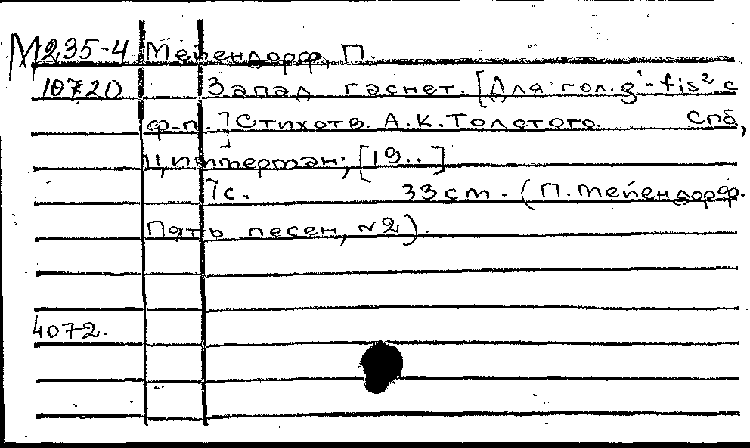 М235-4 Мейендорф, П.
10720 Запад гаснет. [Для гол. g¹-fis² с
ф-п.] Стихотв. А.К.Толстого. Спб,
Циммерман, [19..]
7с. 33см. (П.Мейендорф.
Пять песен, №2).
4072.